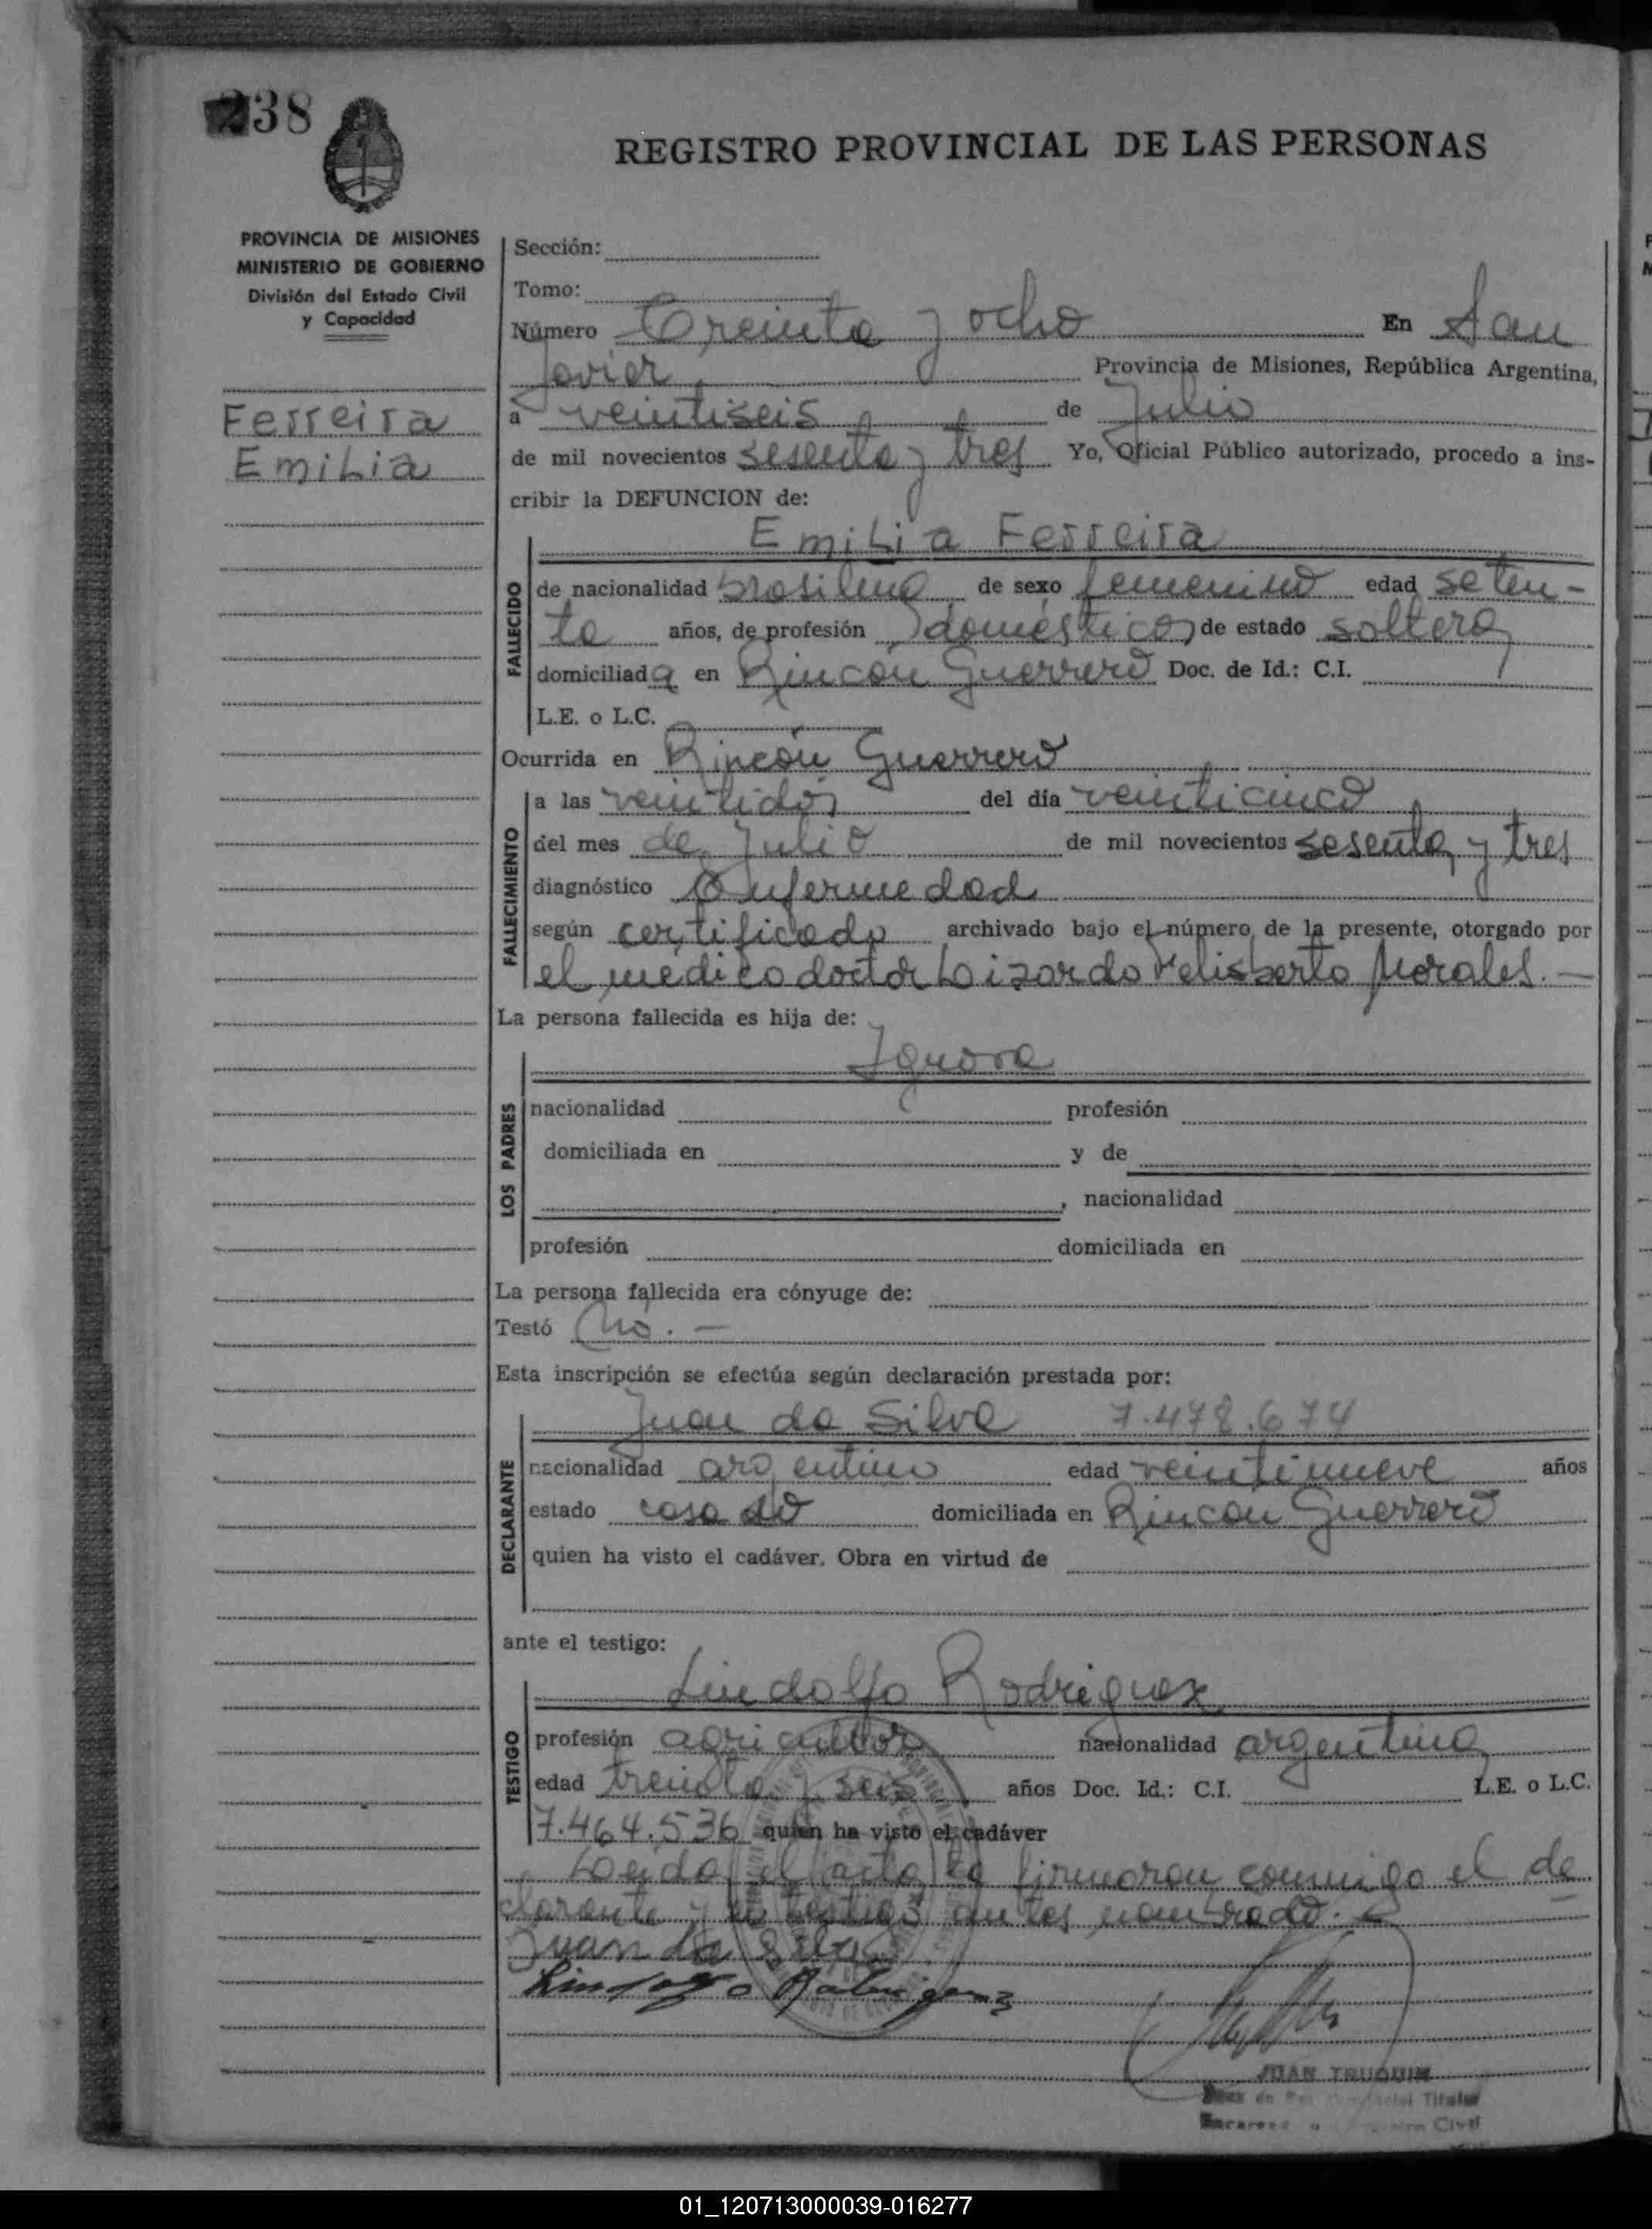 238
REGISTRO PROVINCIAL DE LAS PERSONAS
PROVINCIA DE MISIONES
MINISTERIO DE GOBIERNO
División del Estado Civil
y Capacidad
Ferreira
Emilia
Sección:
Tomo:
Número Treinta y ocho En San
Javier, Provincia de Misiones, República Argentina,
a veintiseis de Julio
de mil novecientos sesenta y tres Yo, Oficial Público autorizado, procedo a ins-
cribir la DEFUNCION de:
Emilia Ferreira
FALLECIDO
de nacionalidad brasilena de sexo femenino edad seten-
ta años, de profesión domestica, de estado soltera,
domiciliada en Rincón Guerrero Doc. de Id.: C.I.
L.E. o L.C.
Ocurrida en Rincón Guerrero
FALLECIMIENTO
a las veintidos del día veinticinco
del mes de Julio de mil novecientos sesenta y tres
diagnóstico Enfermedad
según certificado archivado bajo el número de la presente, otorgado por
el médico doctor Lizardo Felisberto Morales. —
La persona fallecida es hija de:
Ignora
LOS PADRES
nacionalidad profesión
domiciliada en y de
, nacionalidad
profesión domiciliada en
La persona fallecida era cónyuge de:
Testó No. —
Esta inscripción se efectúa según declaración prestada por:
Juan da Silva 7.478.674
DECLARANTE
nacionalidad argentino edad veintinueve años
estado casado domiciliada en Rincon Guerrero
quien ha visto el cadáver. Obra en virtud de
ante el testigo:
Lindolfo Rodriguez
TESTIGO
profesión agricultor nacionalidad argentina
edad treinta y seis años Doc. Id.: C.I. L.E. o L.C.
7.464.536 quien ha visto el cadáver
Leida el acta la firmaron conmigo el de
clarante y el testigo antes nombrado.
Juan da Silva
Lindolfo Rodriguez
JUAN TRUQUIN
Juez de Paz Titular
Civil
01_120713000039-016277